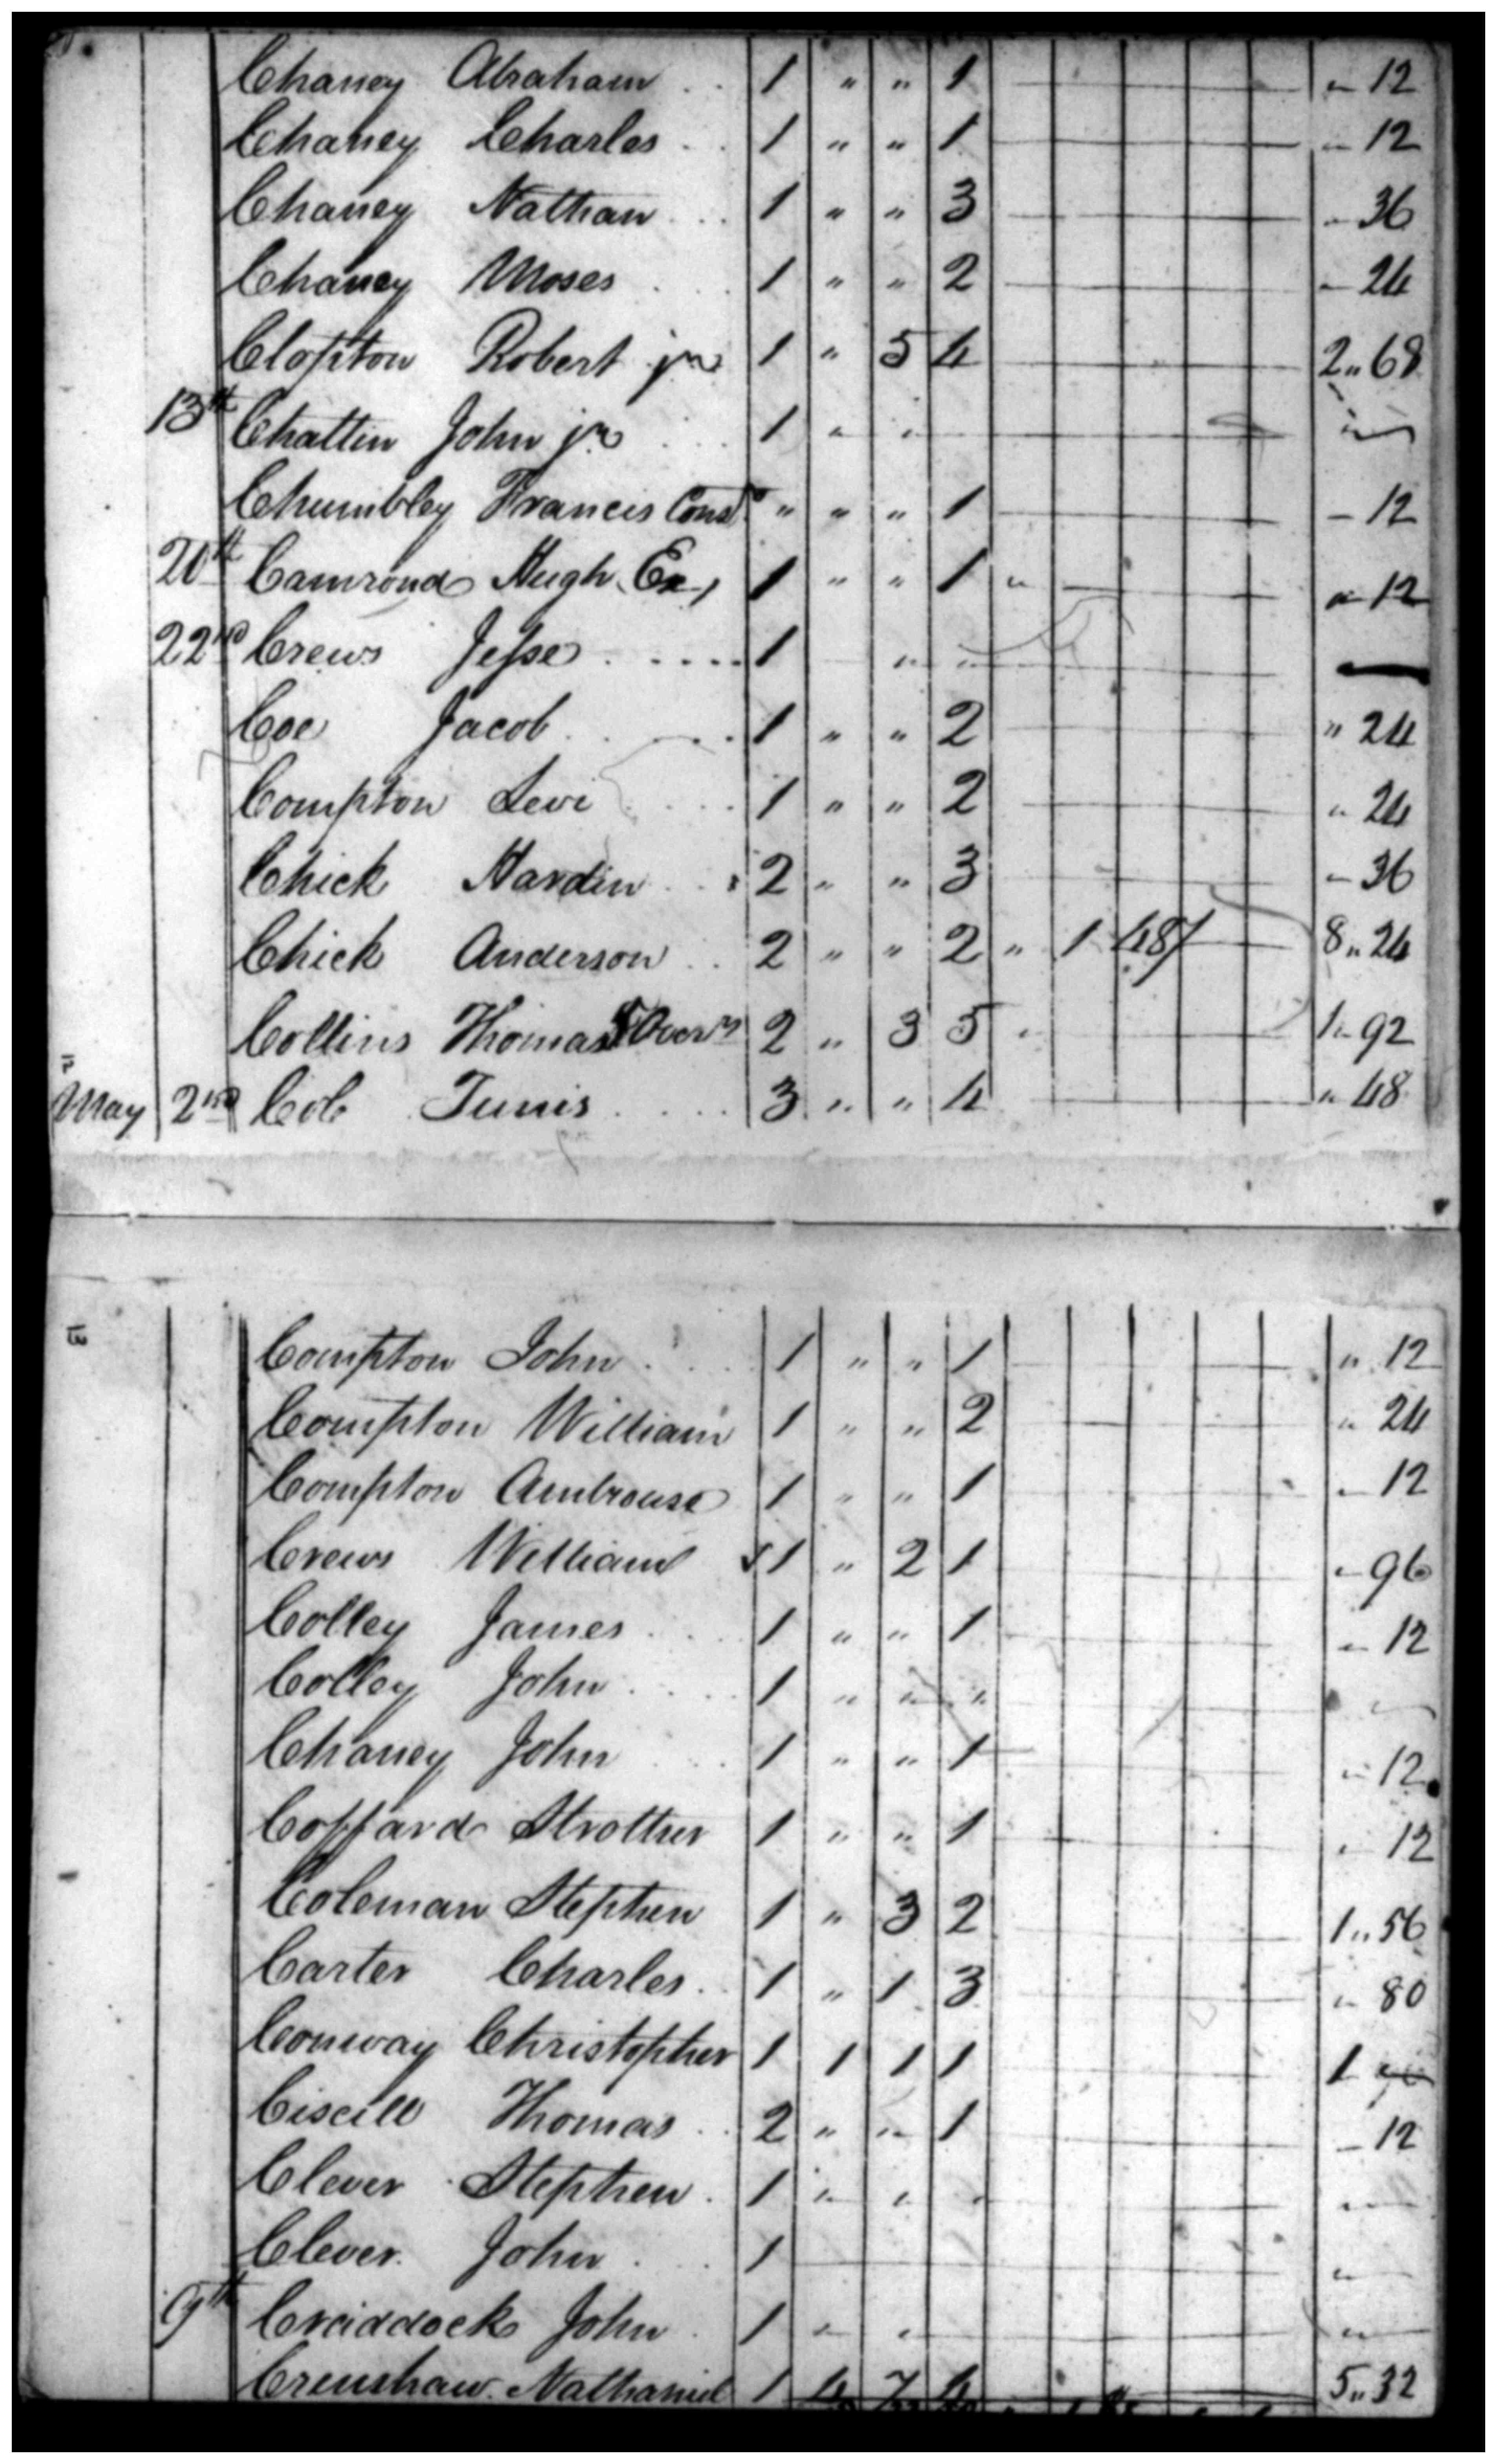 Chaney Abraham . . 1 " " 1 " 12
Chaney Charles . . 1 " " 1 " 12
Chaney Nathan . . 1 " " 3 " 36
Chaney Moses . . 1 " " 2 " 24
Clopton Robert jr 1 " 5 4 2 " 68
13th Chattin John jr . . 1 " " "
Chumbley Francis Const " " " 1 " 12
20th Camrond Hugh Ex, 1 " " 1 " " 12
22nd Crews Jesse . . . . . 1 " "
Coe Jacob . . . . 1 " " 2 " 24
Compton Levi . . . 1 " " 2 " 24
Chick Hardin . . 2 " " 3 " 36
Chick Anderson . . 2 " " 2 " 1 48/ 8 " 24
Collins Thomas Overr 2 " 3 5 " 1 " 92
May 2nd Cob Tunis . . . . 3 " " 4 " 48
Compton John . . . 1 " " 1 " 12
Compton William 1 " " 2 " 24
Compton Ambrouse 1 " " 1 " 12
Crews William 1 " 2 1 " 96
Colley James . . . 1 " " 1 " 12
Colley John . . . . 1 " " " "
Chaney John . . 1 " " 1 " 12
Coffard Strother 1 " " 1 " 12
Coleman Stephen 1 " 3 2 1 " 56
Carter Charles . . 1 " 1 3 " 80
Conway Christopher 1 1 1 1 1
Ciscill Thomas . . 2 " " 1 " 12
Clever Stephen . 1 " " " "
Clever John . . 1 "
9th Craddock John . 1 " " "
Crenshaw Nathaniel 1 4 7 4 5 " 32